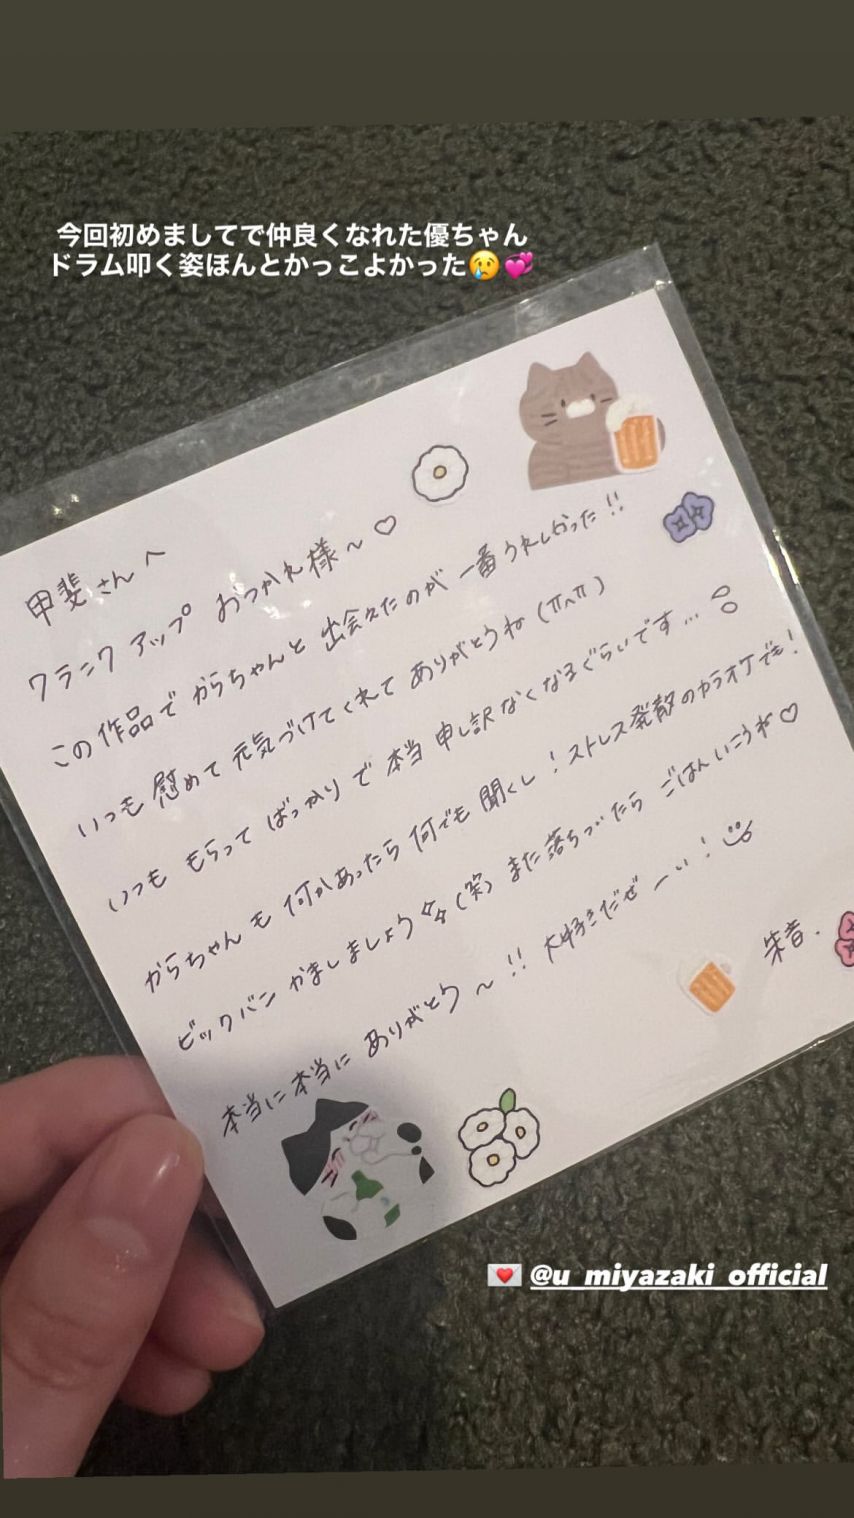 今回初めましてで仲良くなれた優ちゃん
ドラム叩く姿ほんとかっこよかった😢💞
甲斐さんへ
クランクアップ おつかれ様~♡
この作品で からちゃんと 出会えたのが 一番うれしかった!!
いつも慰めて 元気づけてくれて ありがとうね(π^π)
いつも もらって ばっかりで 本当 申し訳なくなるぐらいです...
からちゃんも 何かあったら 何でも 聞くし!ストレス発散のカラオケでも!
ビックバン かましましょう(笑) また落ちついたら ごはんいこうね♡
本当に本当に ありがとう~!! 大好きだぜーい!
朱音.
💌 @u_miyazaki_official